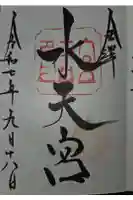 奉拝
水天宮
令和七年九月十八日